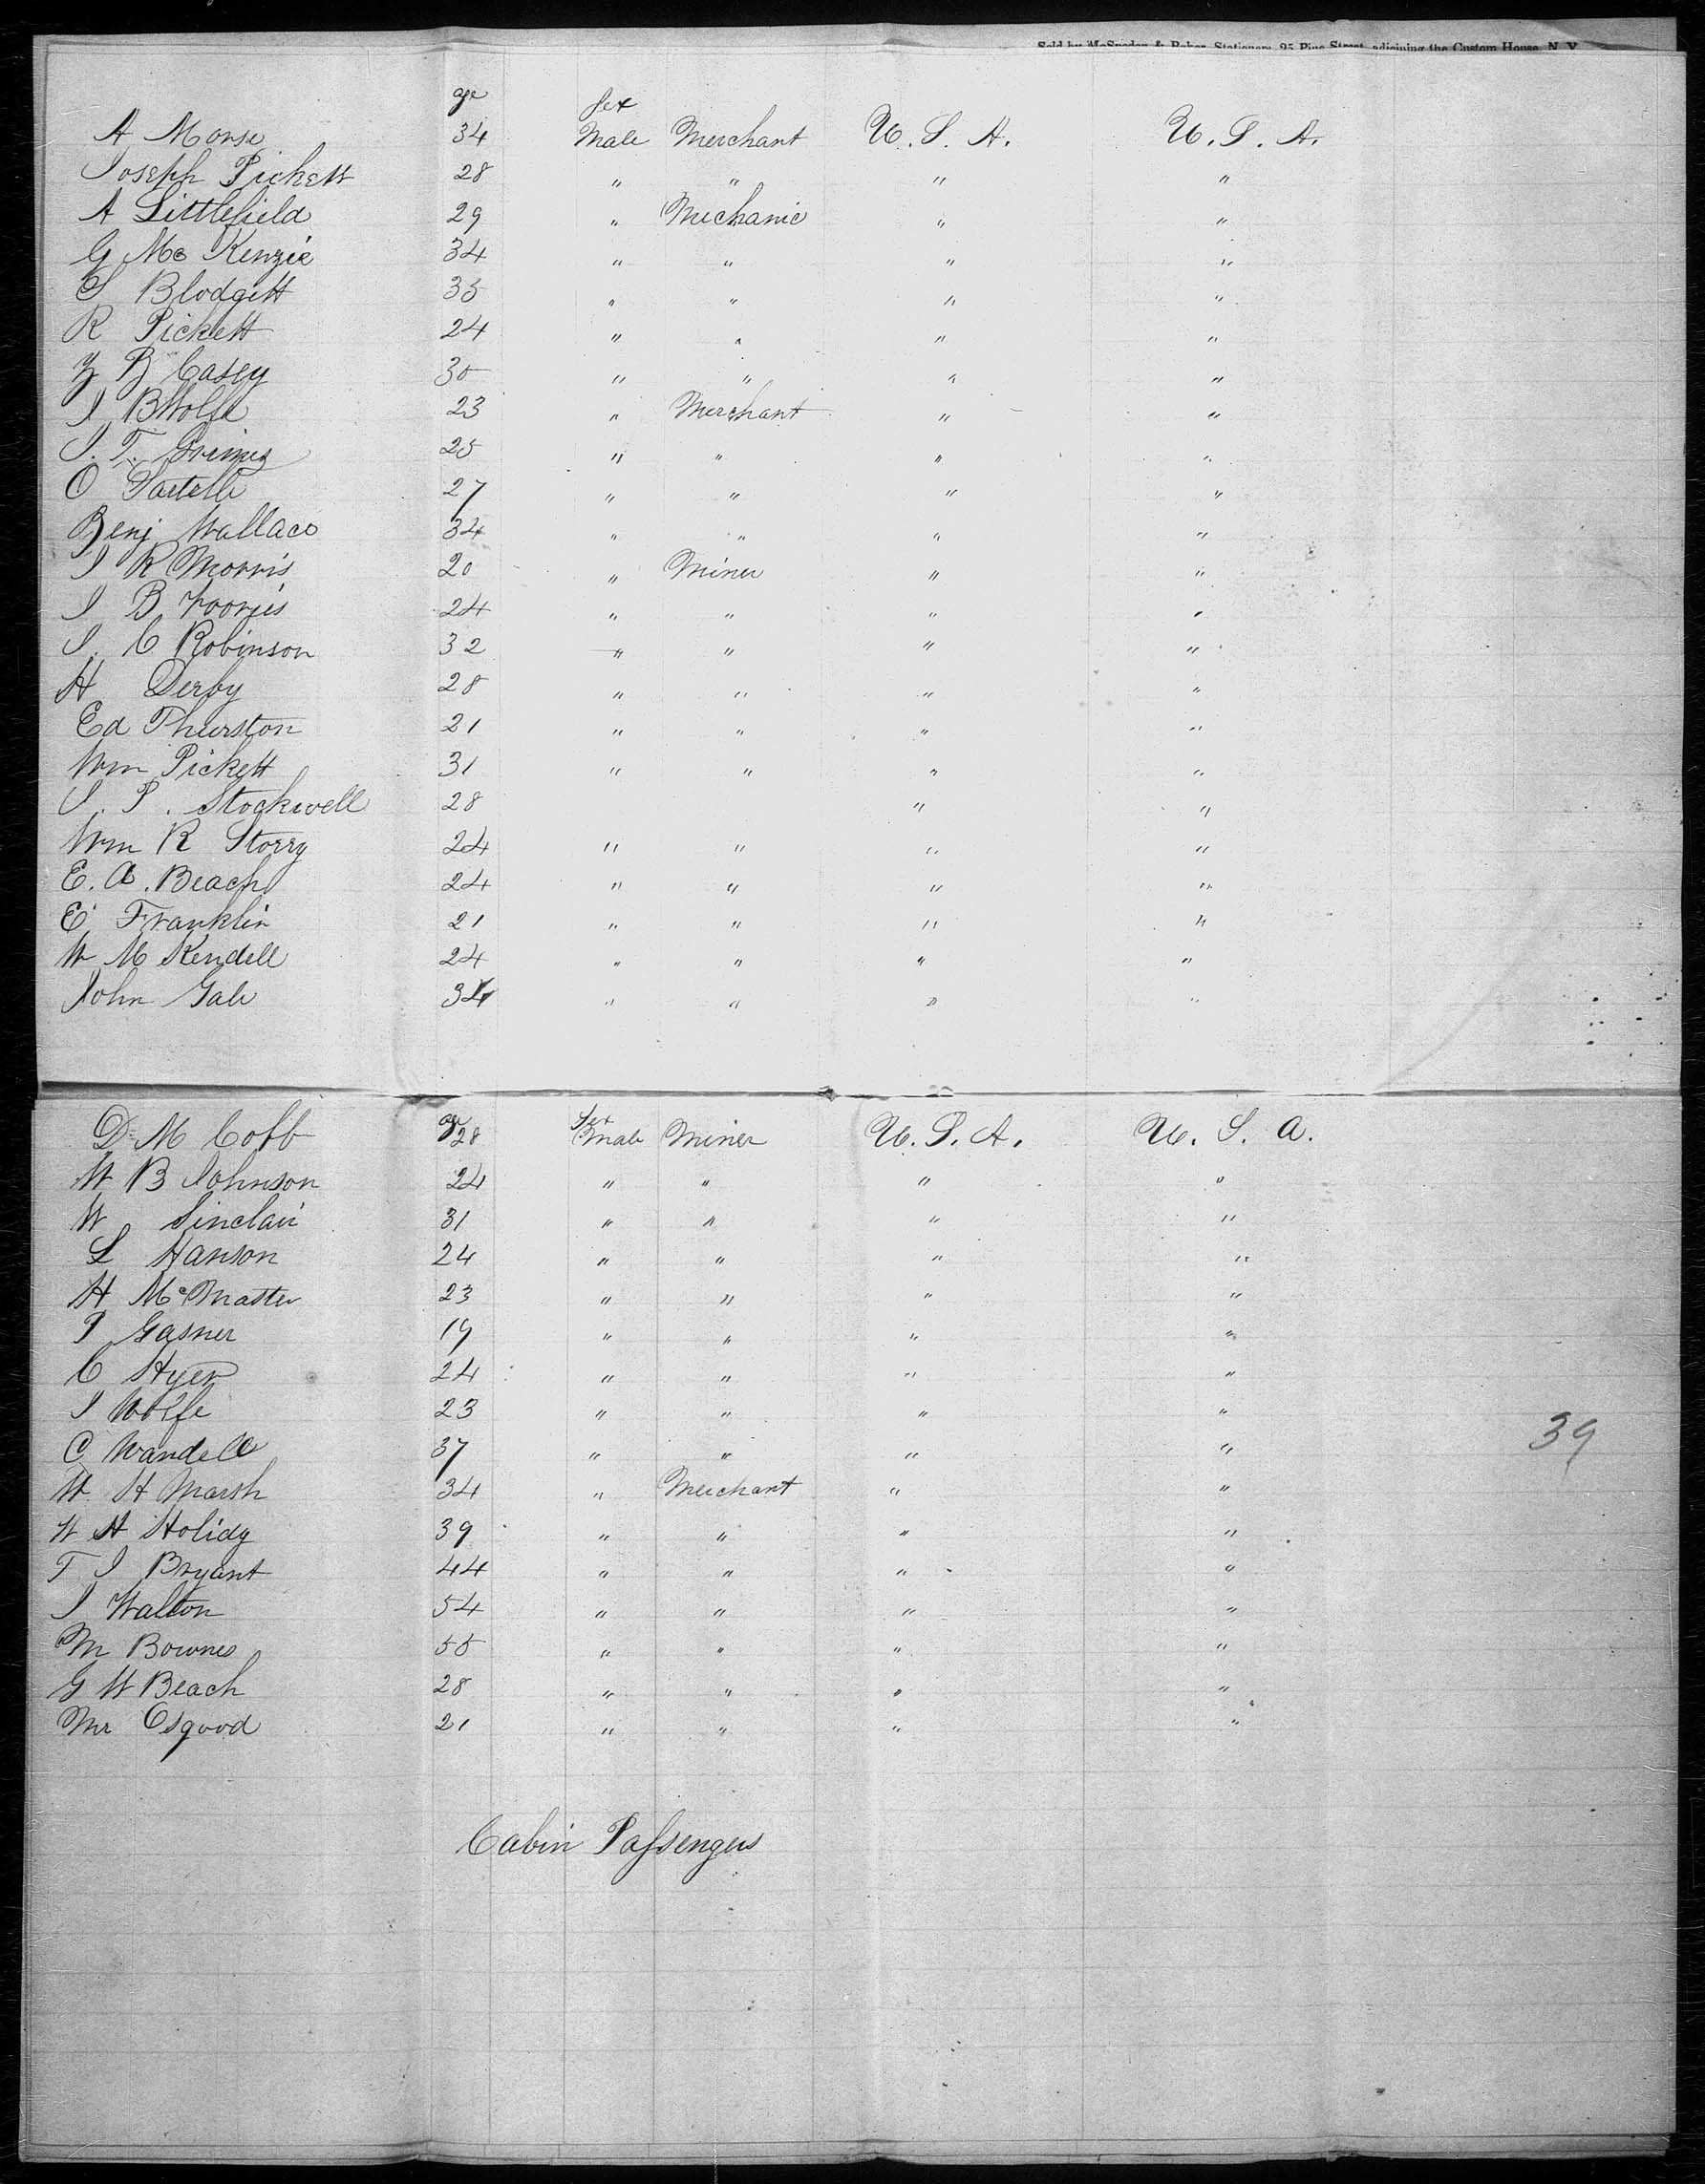 Sold by McSpedon & Baker, Stationers, 25 Pine Street, adjoining the Custom House, N. Y.
age Sex
A Morse 34 Male Merchant U. S. A. U. S. A.
Joseph Pickett 28 " " " "
A Littlefield 29 " Mechanic " "
G Mc Kenzie 34 " " " "
S Blodgett 35 " " " "
R Pickett 24 " " " "
Z B Casey 30 " " " "
J B Wolfe 23 " Merchant " "
J. T. Grimes 25 " " " "
O 27 " " " "
Benj Wallace 34 " " " "
J R Morris 20 " Miner " "
J B Voorjes 24 " " " "
S. C Robinson 32 " " " "
H Derby 28 " " " "
Ed Thurston 21 " " " "
Wm Pickett 31 " " " "
J. P. Stockwell 28 " "
Wm R Storry 24 " " " "
E. A. Beach 24 " " " "
E Franklin 21 " " " "
W M Kendell 24 " " " "
John Gale 34 " " " "
age Sex
D M Cobb 28 Male Miner U. S. A. U. S. A.
W B Johnson 24 " " " "
W Sinclair 31 " " " "
L Hanson 24 " " " "
H McMaster 23 " " " "
J Gasner 19 " " " "
C Hyer 24 " " " "
J Wolfe 23 " " " "
39
C Wandell 37 " " " "
W. H Marsh 34 " Merchant " "
W H Holidy 39 " " " "
T J Bryant 44 " " " "
J Walton 54 " " " "
M Bownes 55 " " " "
G W Beach 28 " " " "
Mr Osgood 21 " " " "
Cabin Passengers